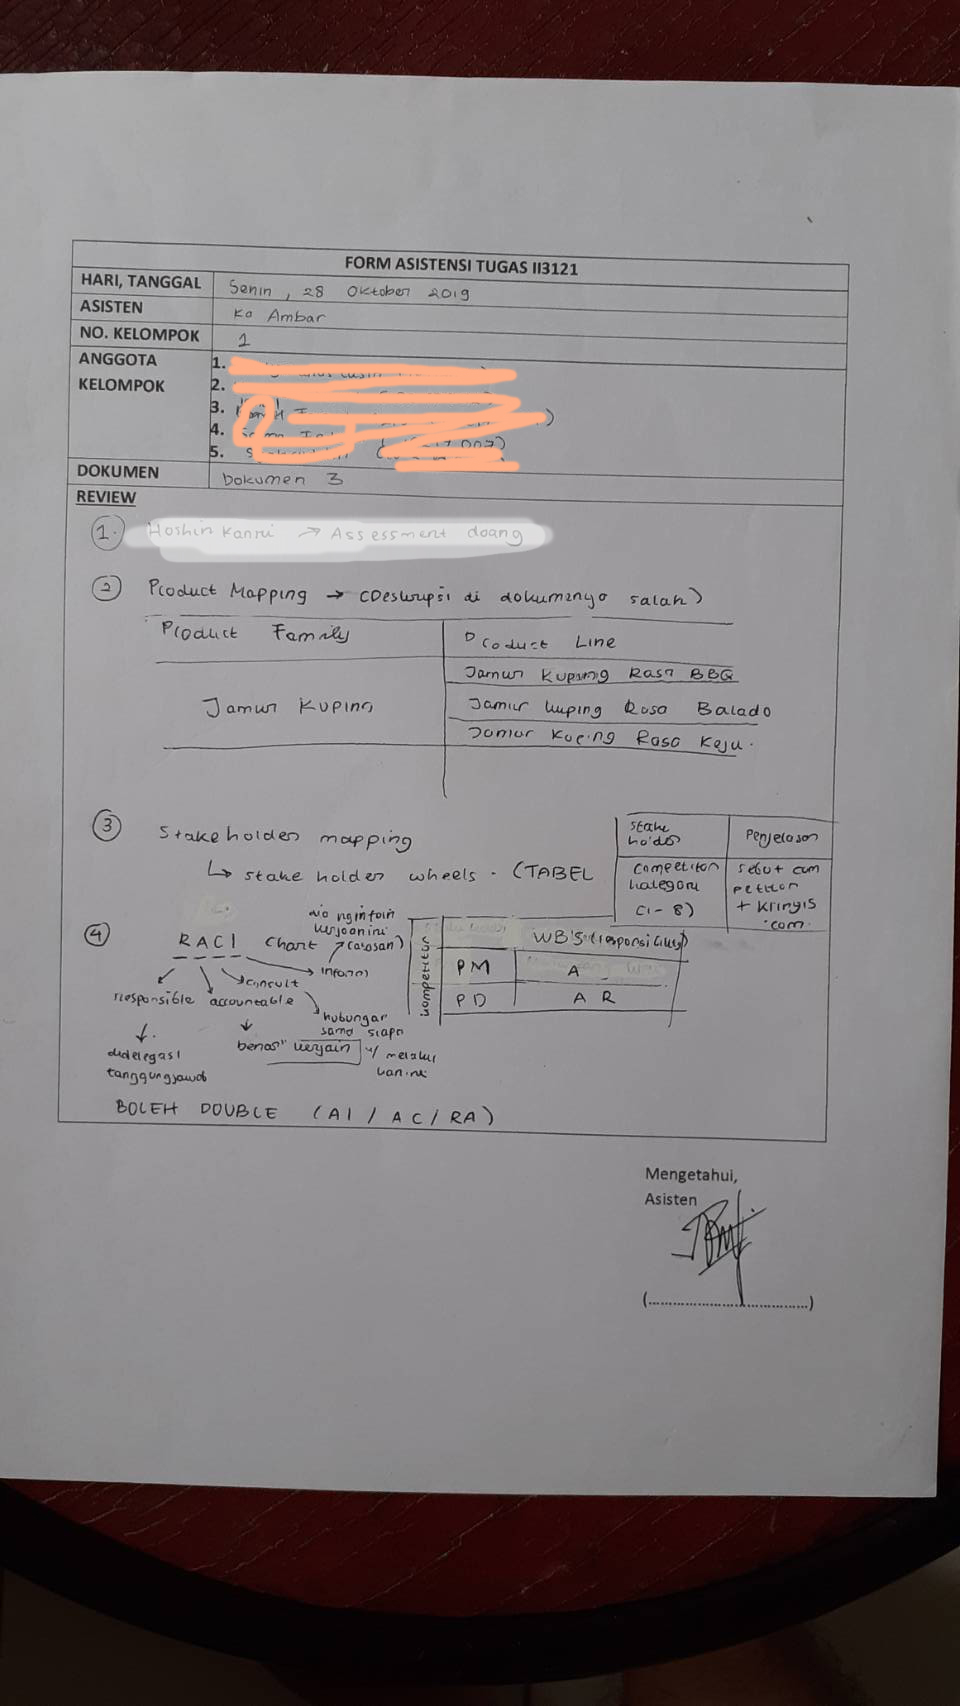 FORM ASISTENSI TUGAS II3121
HARI, TANGGAL Senin, 28 Oktober 2019
ASISTEN Ka Ambar
NO. KELOMPOK 1
ANGGOTA
KELOMPOK
1.
2.
3.
4.
5.
DOKUMEN Dokumen 3
REVIEW
1. Hoshin Kanri → Assessment doang
2 Product Mapping → (Deskripsi di dokumennya salah)
Product Family Product Line
Jamur Kuping
Jamur Kuping Rasa BBQ
Jamur kuping Rasa Balado
Jamur Kuping Rasa Keju.
3 Stakeholder mapping
↳ stake holder wheels. (TABEL
stake holder Penjelasan
competitor kategori (1-8)
sebut competitor + kringis.com
4 RACI chart
(atasan)
inform
consult
responsible accountable
hubungan sama siapa
didelegasi tanggungjawab
benar" kerjain
BOLEH DOUBLE (AI / AC / RA)
WBS (responsibility)
PM A
PD A R
Mengetahui,
Asisten
(....................................)